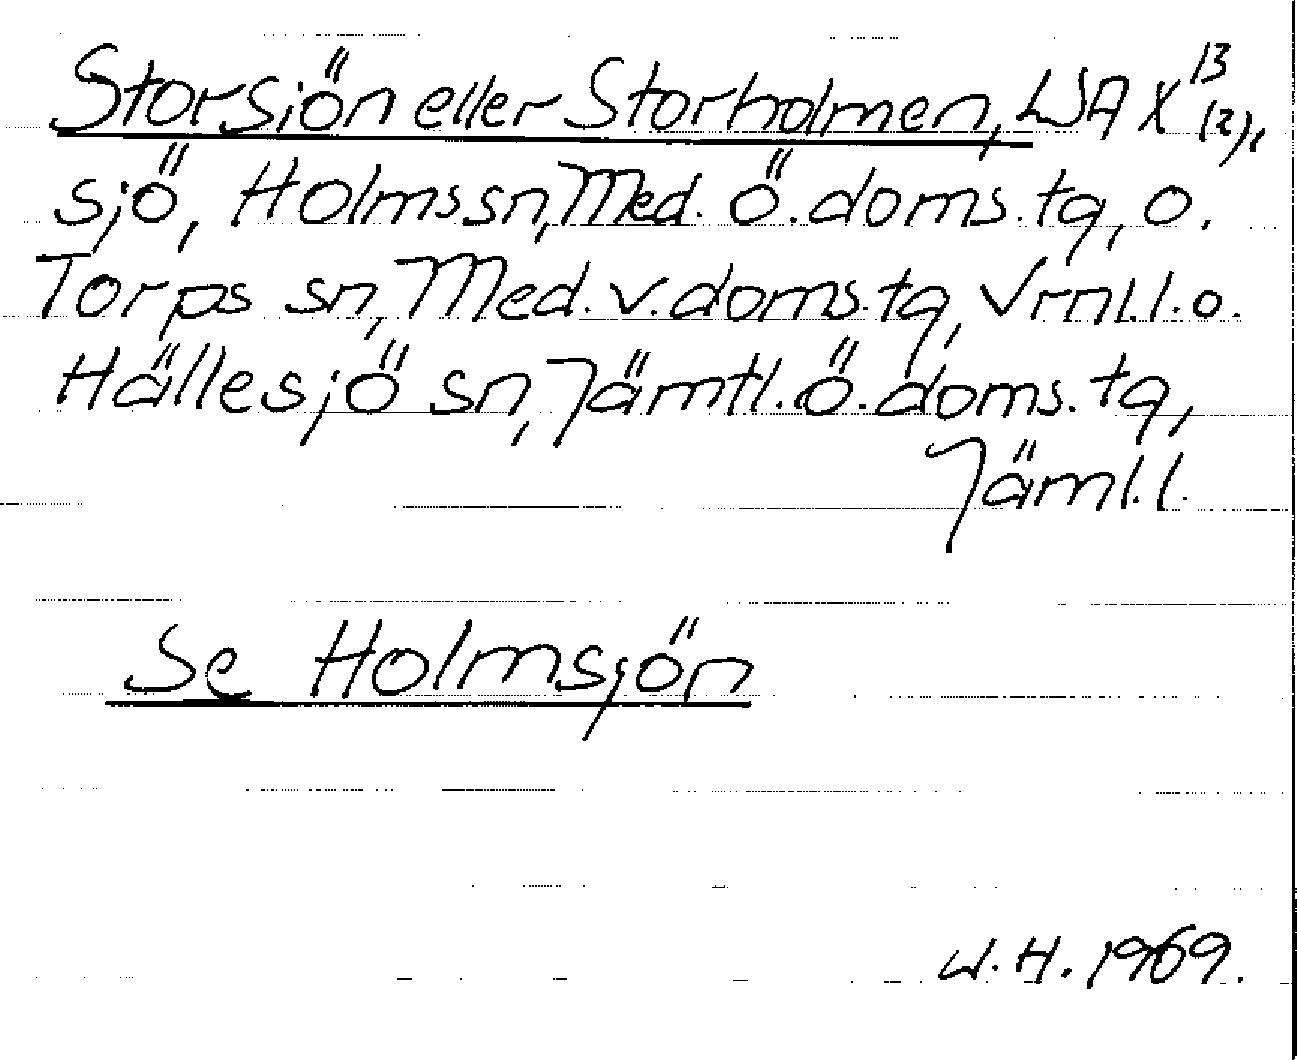 Storsjön eller Storholmen, WA X 13 (2),
sjö, Holms sn, Med. Ö. doms. tq, o.
Torps sn, Med. v. doms. tq, Vrnl. l. o.
Hällesjö sn, Jämtl. ö. doms. tq,
Jäml. l.
Se Holmsjön
W. H. 1969.